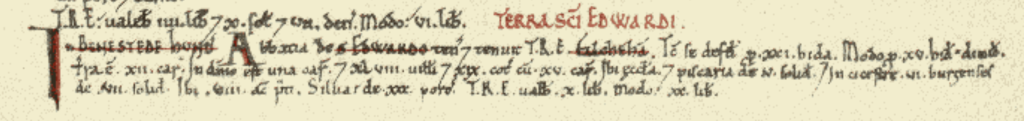 T.R.E. ualeb iiii. lib 7 x. sol 7 vii. den. Modo: vi. lib. TERRA SCI EDWARDI.
IN BENESTEDE HUND. Abbatia de S EDWARDO ten 7 tenuit T.R.E. Tc se defd p. xxi. hida. Modo p. xv. hid 7 dimid.
Tra e. xii. car. In dnio est una car. 7 xl viii. uilli 7 xix. cot cu. xv. car. Ibi eccla. 7 piscaria de v. solid. 7 In cicestre. vi. burgenses
de vii. solid. Ibi. viii. ac pti. Silua de xxx porc. T.R.E. ualb. x. lib. modo. xx. lib.